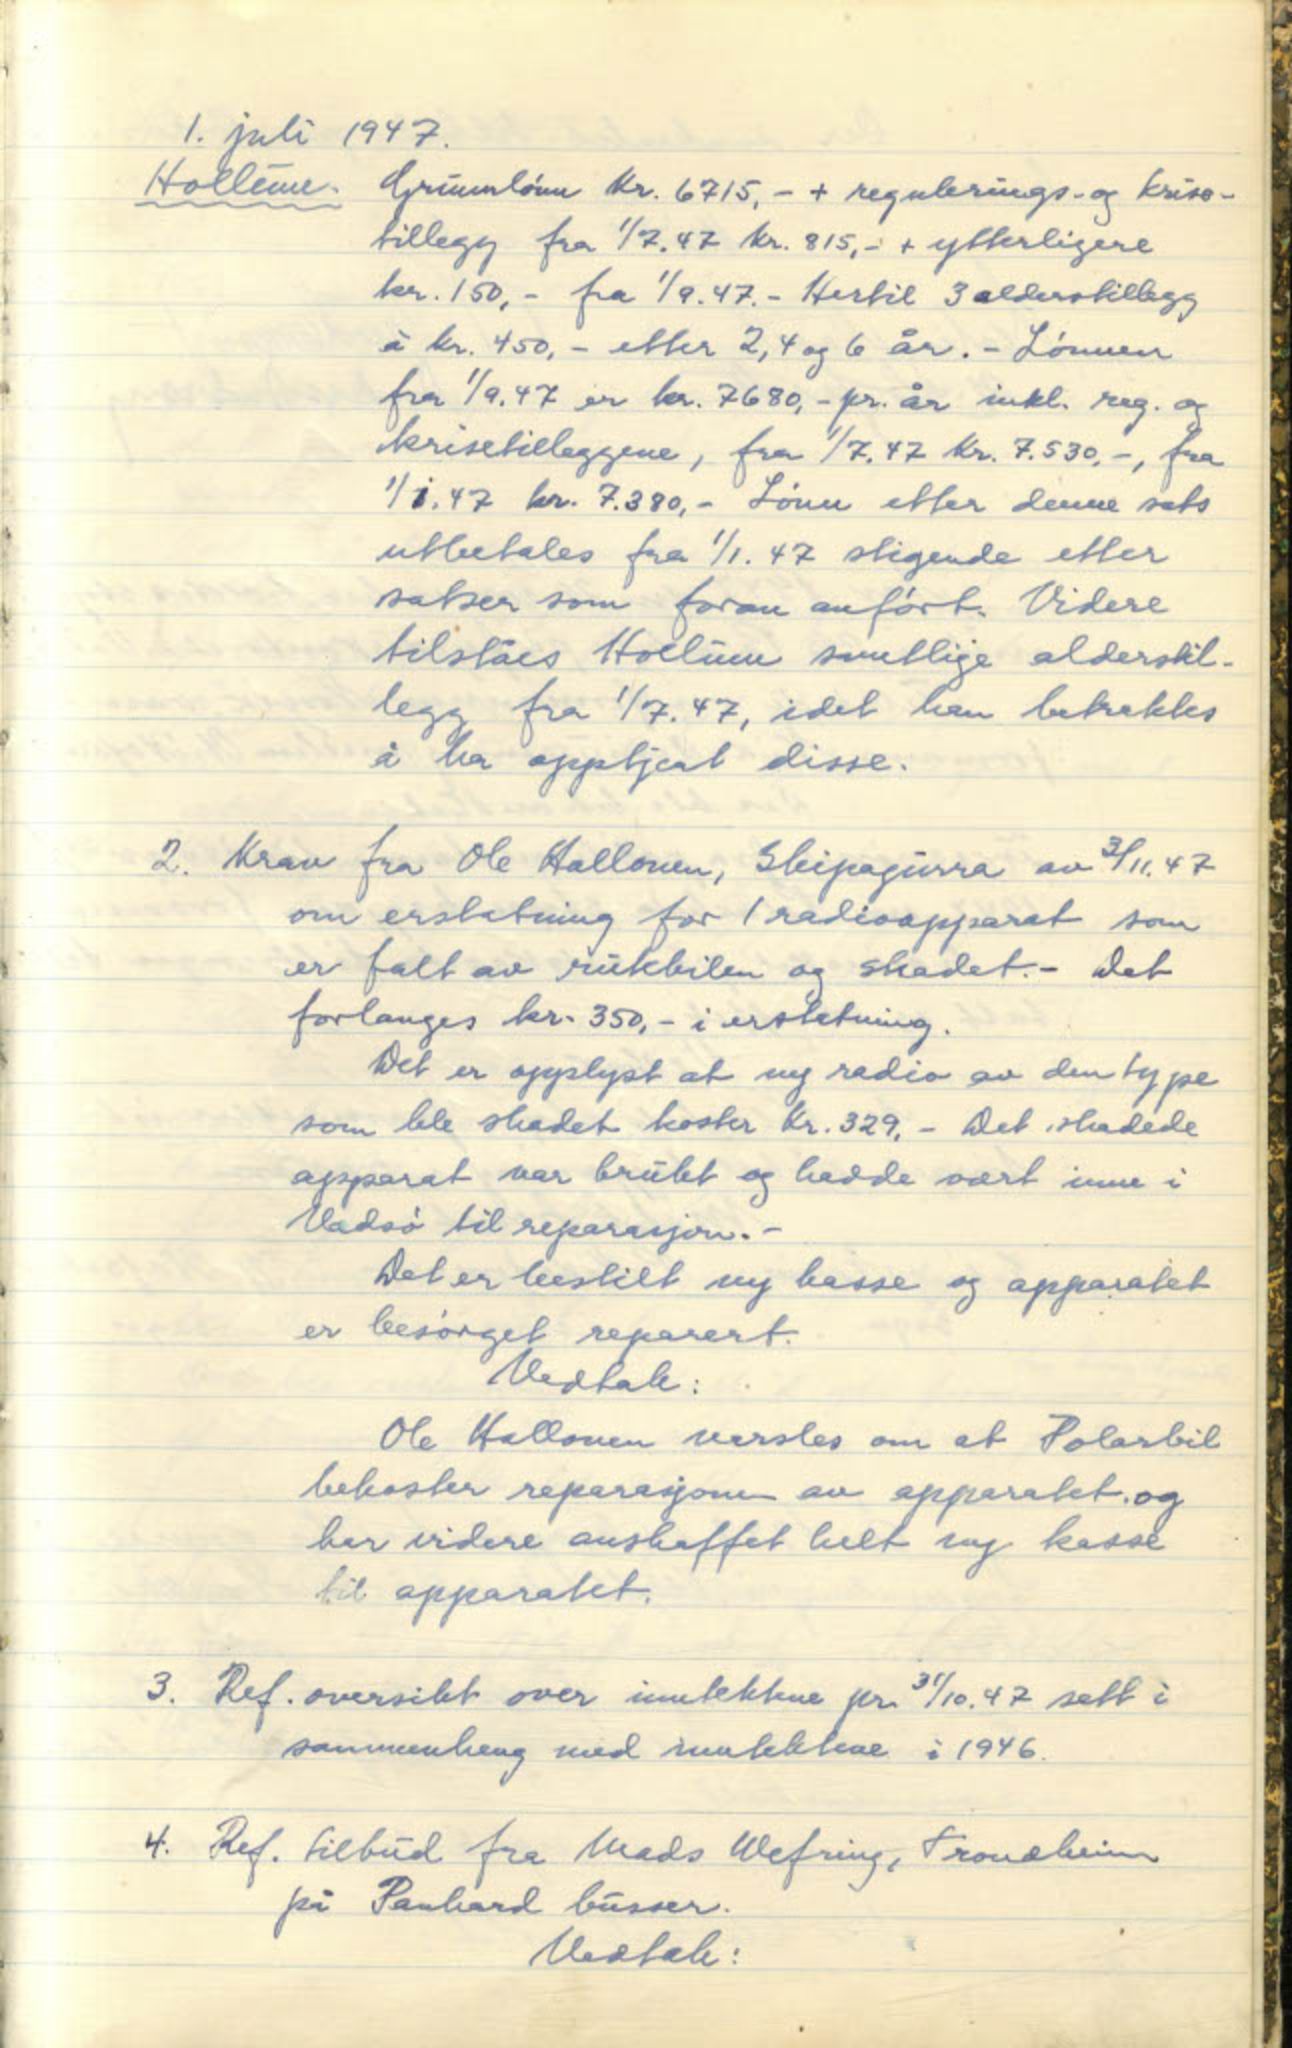 1. juli 1947.
Hollüm. Grunnlønn kr. 6715,- + regulerings- og krise-
tillegg fra 1/7.47 kr. 815,- + ytterligere
kr. 150,- fra 1/9.47.- Hertil 3 alderstillegg
à kr. 450,- etter 2, 4 og 6 år. - Lønnen
fra 1/9.47 er kr. 7680,- pr. år inkl. reg. og
krisetilleggene, fra 1/7.47 kr. 7.530,-, fra
1/1.47 kr. 7.380,- Lønn etter denne sats
utbetales fra 1/1.47 stigende etter
satser som foran anført. Videre
tilståes Hollüm samtlige alderstil-
legg fra 1/7.47, idet han betraktes
å ha opptjent disse.
2. Krav fra Ole Hallonen, Skipagurra av 3/11.47
om erstatning for 1 radioapparat som
er falt av rutebilen og skadet.- Det
forlanges kr. 350,- i erstatning.
Det er opplyst at ny radio av den type
som ble skadet koster kr. 329,- Det skadede
apparat var brukt og hadde vært inne i
Vadsø til reparasjon.-
Det er bestilt ny kasse og apparatet
er besørget reparert.
Vedtak:
Ole Hallonen varsles om at Polarbil
bekoster reparasjonen av apparatet og
har videre anskaffet helt ny kasse
til apparatet.
3. Ref. oversikt over inntektene pr. 31/10.47 sett i
sammenheng med inntektene i 1946.
4. Ref. tilbud fra Mads Wefring, Trondheim
på Panhard busser.
Vedtak: